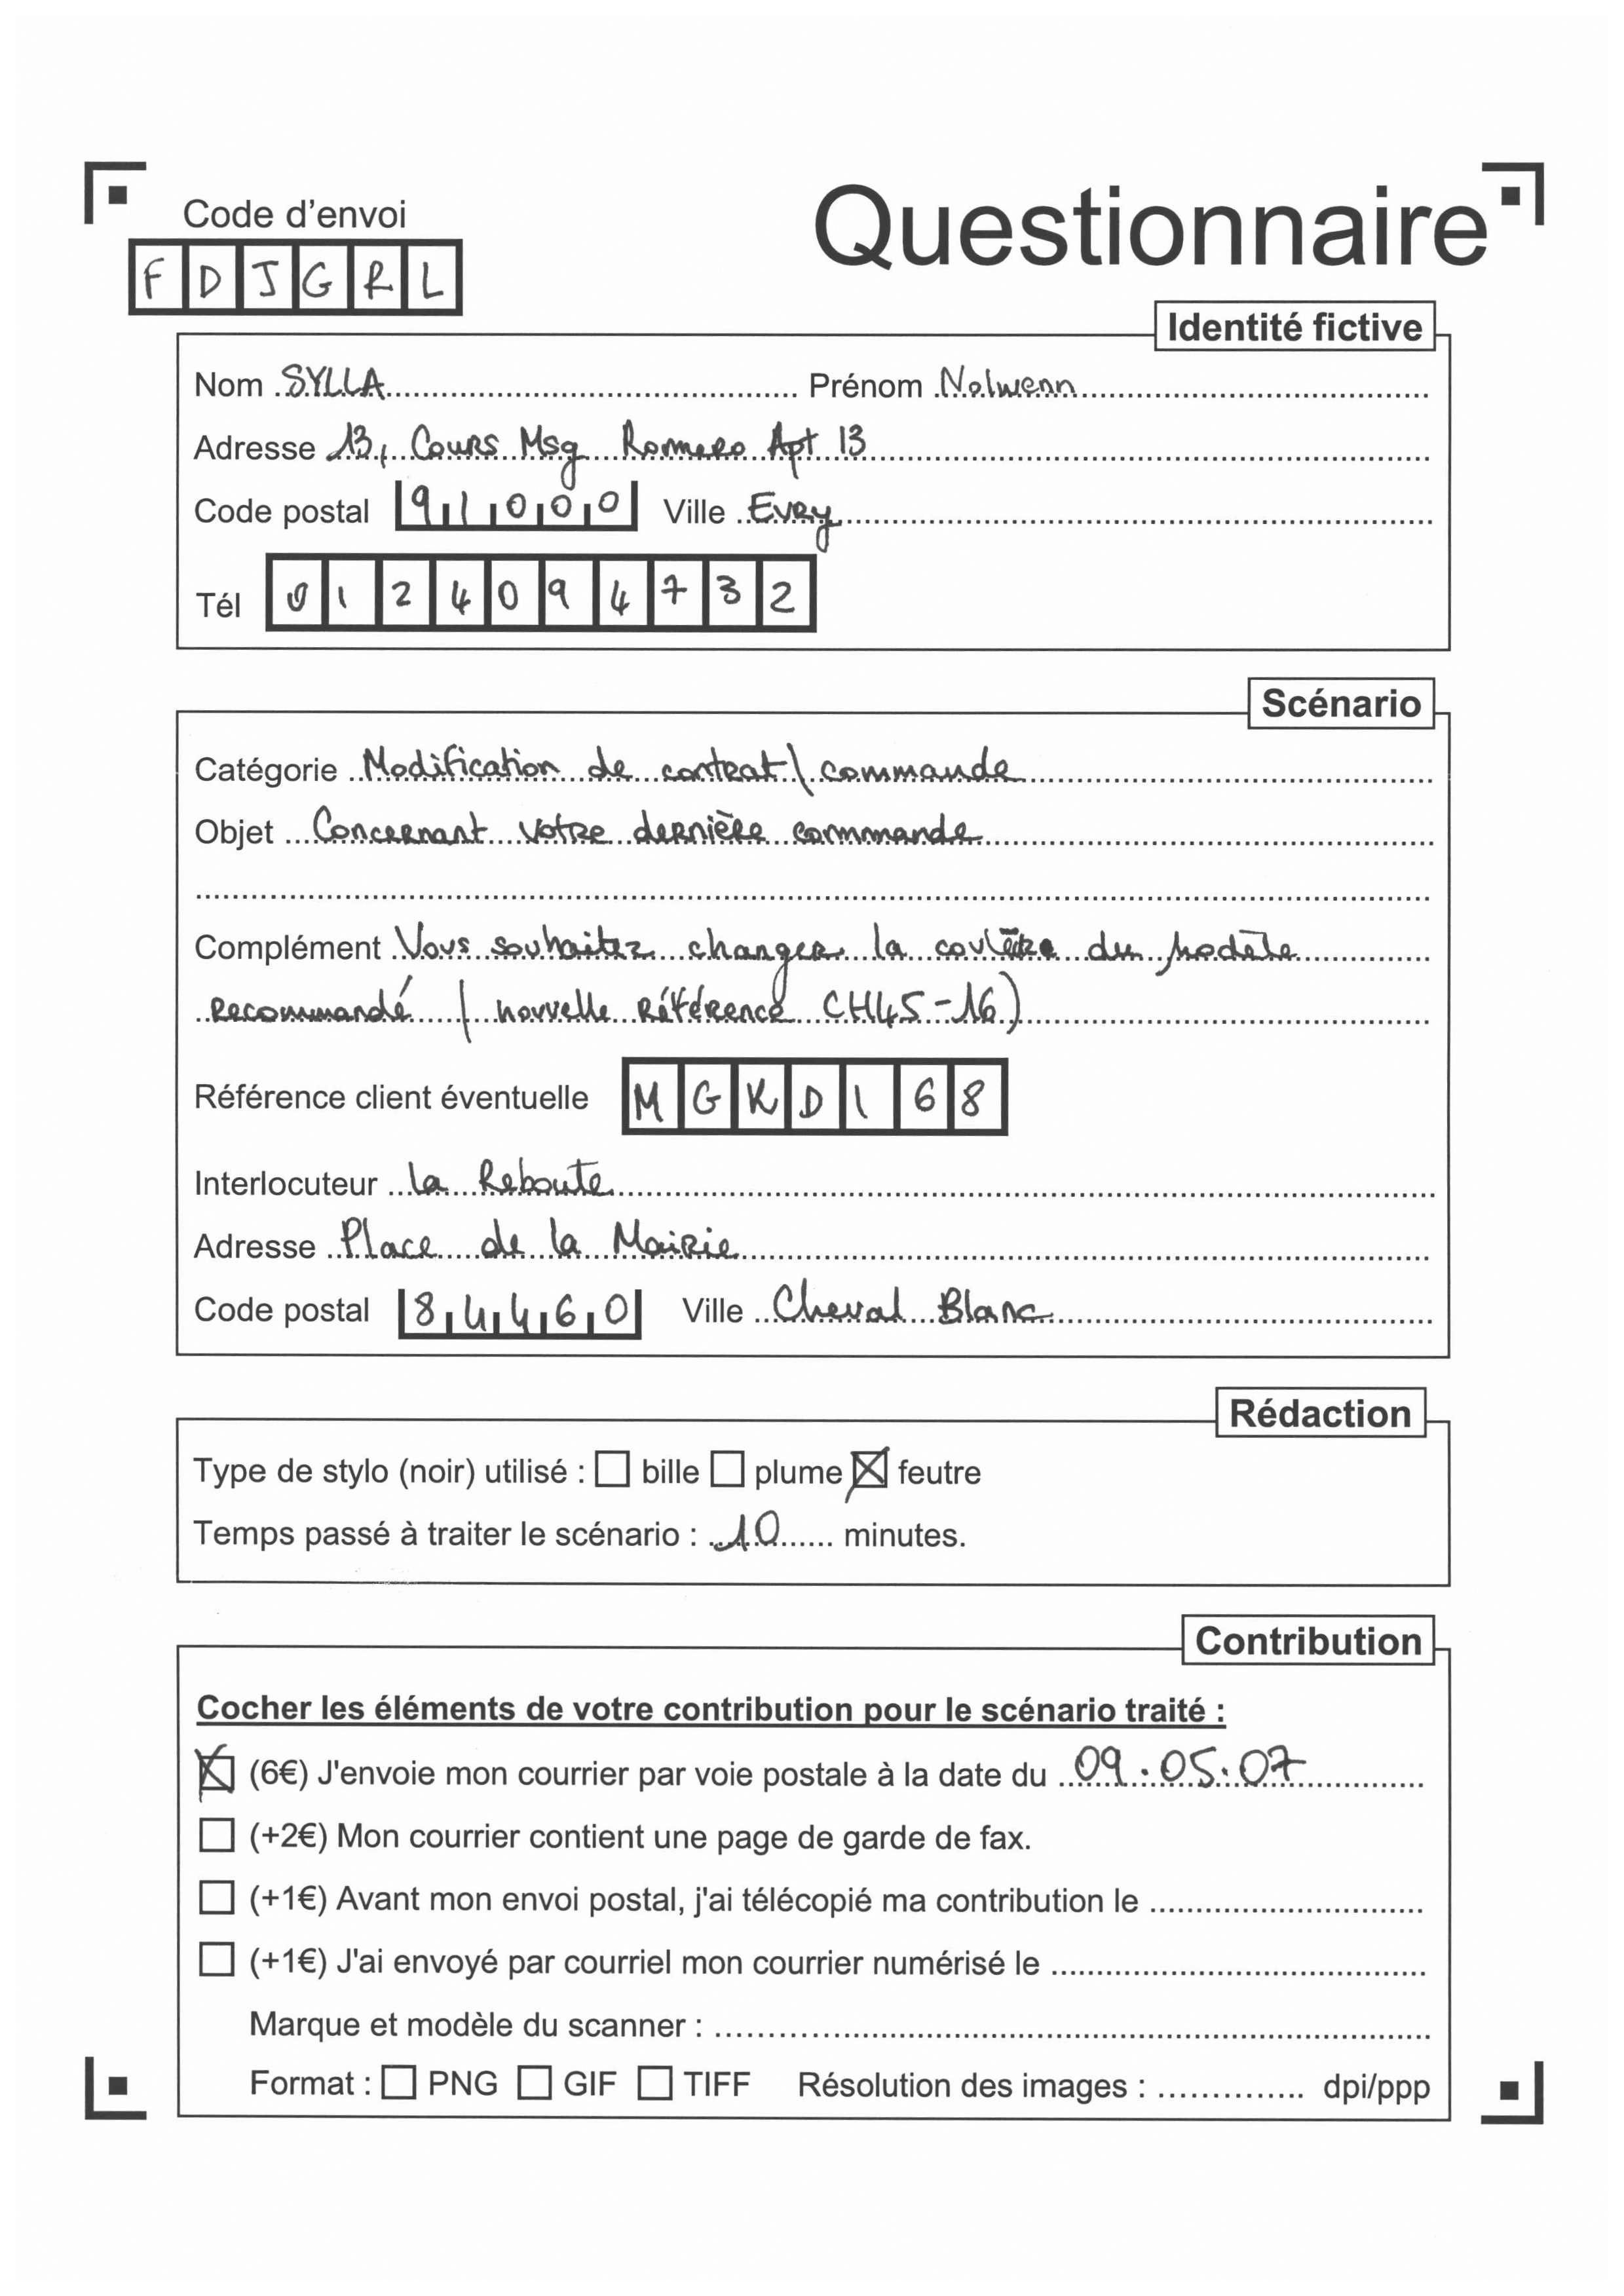 Questionnaire
Code d'envoi
F D J G R L
Identité fictive
Nom SYLLA Prénom Nolwenn
Adresse 13, Cours Msg Romero Apt 13
Code postal 91000 Ville Evry
Tél 0124094732
Scénario
Catégorie Modification de contrat \ commande
Objet Concernant votre dernière commande
Complément Vous souhaitez changer la couleur du modèle
recommandé ( nouvelle référence CH45-16)
Référence client éventuelle MGKD168
Interlocuteur La Reboute
Adresse Place de la Mairie
Code postal 84460 Ville Cheval Blanc
Rédaction
Type de stylo (noir) utilisé : ☐ bille ☐ plume ☒ feutre
Temps passé à traiter le scénario : 10 minutes.
Contribution
Cocher les éléments de votre contribution pour le scénario traité :
☒ (6€) J'envoie mon courrier par voie postale à la date du 09.05.07
☐ (+2€) Mon courrier contient une page de garde de fax.
☐ (+1€) Avant mon envoi postal, j'ai télécopié ma contribution le
☐ (+1€) J'ai envoyé par courriel mon courrier numérisé le
Marque et modèle du scanner :
Format : ☐ PNG ☐ GIF ☐ TIFF Résolution des images : dpi/ppp